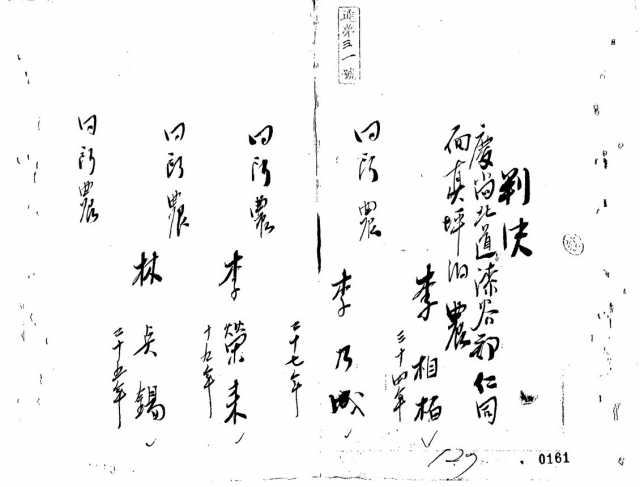 連第三一號
判決
慶尚北道漆谷郡仁同
面真坪洞 農
李相栢
三十四年
同所農
李乃成
二十七年
同所農
李榮来
十九年
同所農
林点錫
二十五年
同所農
0161